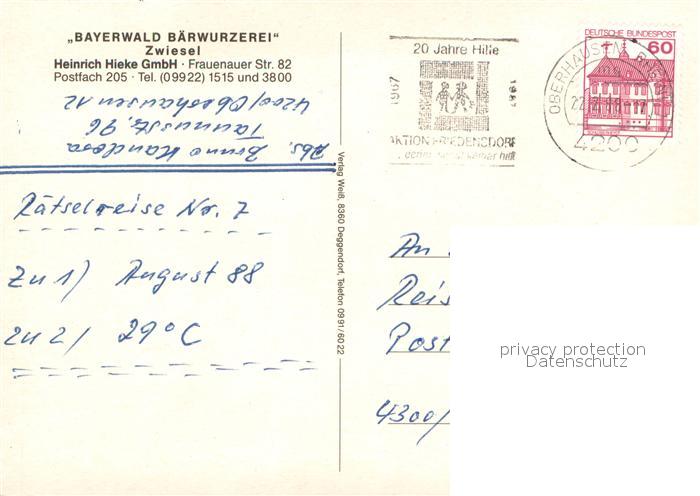 „BAYERWALD BÄRWURZEREI“
Zwiesel
Heinrich Hieke GmbH · Frauenauer Str. 82
Postfach 205 · Tel. (0 99 22) 1515 und 38 00
Abs. Bruno
Taunusstr. 96
4200/Oberhausen 12
Rätselreise Nr. 7
Zu 1) August 88
zu 2/ 29° C
Verlag Weiß, 8360 Deggendorf, Telefon 09 91/60 22
20 Jahre Hilfe
1967
1987
AKTION FRIEDENSDORF
hilft
DEUTSCHE BUNDESPOST
60
OBERHAUSEN
4200
An
Reis
Post
4300/
privacy protection
Datenschutz